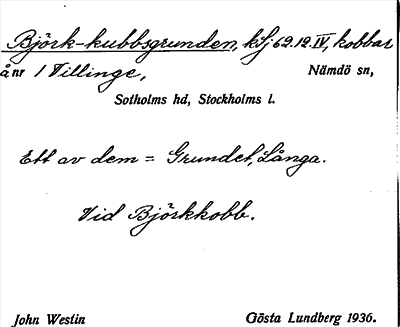 Björk-kubbsgrunden, kSj 62.12.IV, kobbar
å nr 1 Tillinge, Nämdö sn,
Sotholms hd, Stockholms l.
Ett av dem = Grundet, Långa.
Vid Björkkobb.
John Westin Gösta Lundberg 1936.